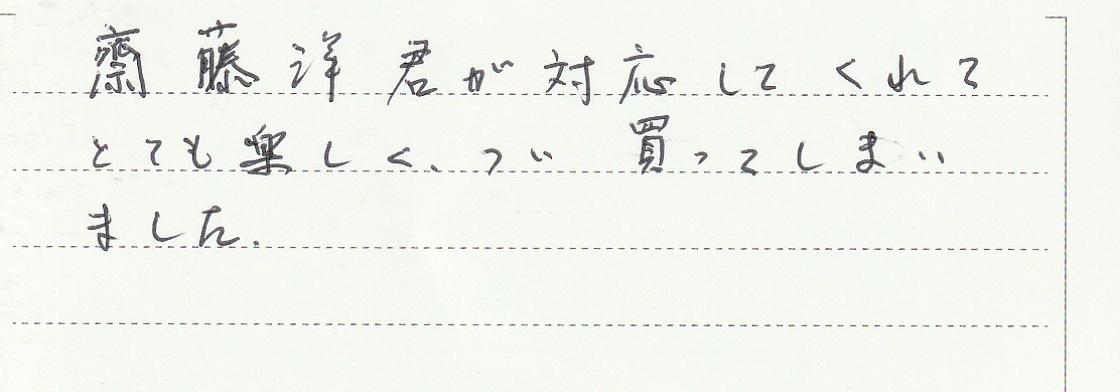 齋藤洋君が対応してくれて
とても楽しく、つい買ってしまい
ました.